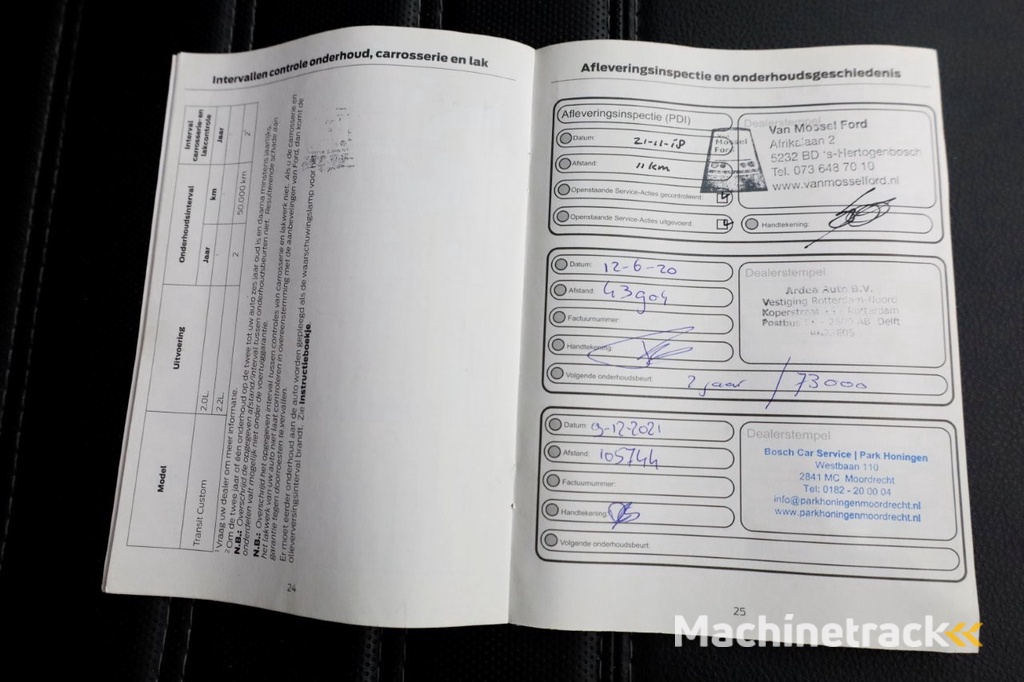 Intervallen controle onderhoud, carrosserie en lak
Model
Uitvoering
Onderhoudsinterval
Interval carrosserie-en lakcontrole
Jaar
km
Jaar
Transit Custom
2.0L
2
50.000 km
2
2.2L
¹ Vraag uw dealer om meer informatie.
² Om de twee jaar of één onderhoud op de twee tot uw auto zes jaar oud is en daarna minstens jaarlijks.
N.B.: Overschrijd het opgegeven afstand/interval tussen onderhoudsbeurten niet. Resulterende schade aan
onderdelen valt mogelijk niet onder de voertuiggarantie.
N.B.: Overschrijd het opgegeven interval tussen controles van carrosserie en lakwerk niet. Als u de carrosserie en
het lakwerk van uw auto niet laat controleren in overeenstemming met de aanbevelingen van Ford, dan komt de
garantie tegen doorroesten te vervallen.
Er moet eerder onderhoud aan de auto worden gepleegd als de waarschuwingslamp voor het
olieverversingsinterval brandt. Zie Instructieboekje.
24
Afleveringsinspectie en onderhoudsgeschiedenis
Afleveringsinspectie (PDI)
Datum: 21-11-18
Afstand: 11 km
Openstaande Service-Acties gecontroleerd:
Openstaande Service-Acties uitgevoerd:
Dealerstempel
Mossel
Ford
Van Mossel Ford
Afrikalaan 2
5232 BD 's-Hertogenbosch
Tel. 073 648 70 10
www.vanmosselford.nl
Handtekening:
Datum: 12-6-20
Afstand: 43904
Factuurnummer:
Handtekening:
Volgende onderhoudsbeurt: 2 jaar / 73000
Dealerstempel
Ardea Auto B.V.
Vestiging Rotterdam-Noord
Koperstraat Rotterdam
Postbus AB Delft
Datum: 13-12-2021
Afstand: 105744
Factuurnummer:
Handtekening:
Volgende onderhoudsbeurt:
Dealerstempel
Bosch Car Service | Park Honingen
Westbaan 110
2841 MC Moordrecht
Tel: 0182 - 20 00 04
info@parkhoningenmoordrecht.nl
www.parkhoningenmoordrecht.nl
25
Machinetrack